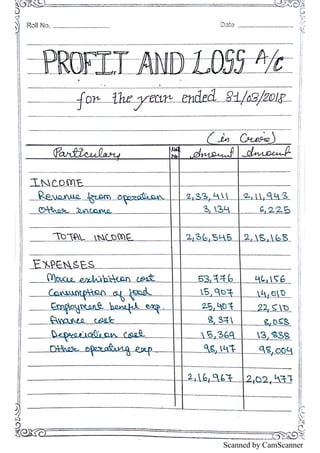 Roll No.
Date
PROFIT AND LOSS A/c
for the year ended 31/03/2018
(in Crore)
Particulars Amount Amount
INCOME
Revenue from operation 2,33,411 2,11,943
Other income 3,134 6,225
TOTAL INCOME 2,36,545 2,18,168
EXPENSES
Movie exhibition cost 53,776 46,156
Consumption of food 15,907 14,010
Employment benefit exp. 25,407 22,510
Finance cost 8,371 8,058
Depreciation cost 15,369 13,838
Other operating exp. 98,147 98,004
2,16,967 2,02,477
Scanned by CamScanner